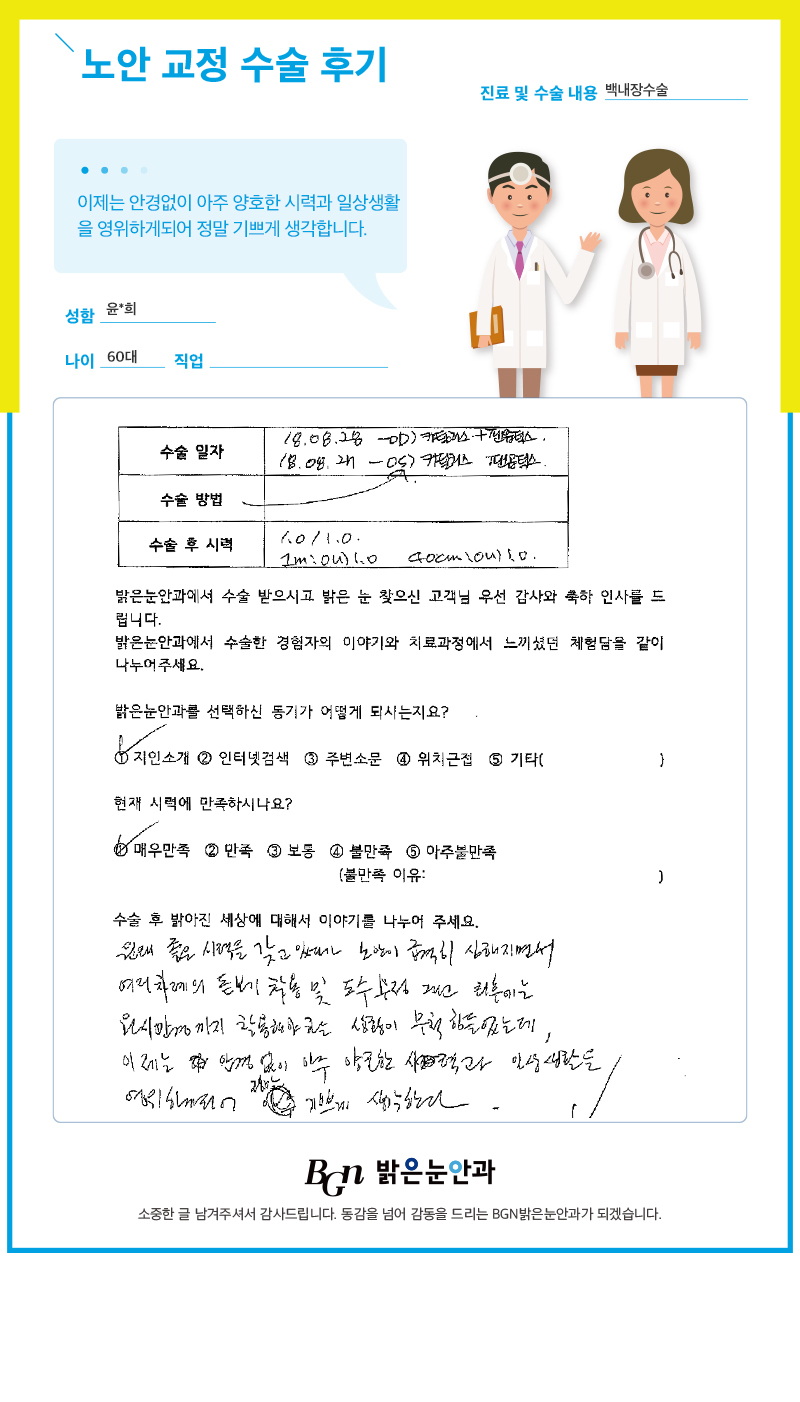 노안 교정 수술 후기
진료 및 수술 내용 백내장수술
이제는 안경없이 아주 양호한 시력과 일상생활
을 영위하게되어 정말 기쁘게 생각합니다.
성함 윤*희
나이 60대 직업
수술 일자 18.08.28 -OD) 카탈리스+
18.08. -OS) 카탈리스
수술 방법
수술 후 시력 1.0/1.0.
1m:OU)1.0 40cm:OU)1.0.
밝은눈안과에서 수술 받으시고 밝은 눈 찾으신 고객님 우선 감사와 축하 인사를 드
립니다.
밝은눈안과에서 수술한 경험자의 이야기와 치료과정에서 느끼셨던 체험담을 같이
나누어주세요.
밝은눈안과를 선택하신 동기가 어떻게 되시는지요?
① 지인소개 ② 인터넷검색 ③ 주변소문 ④ 위치근접 ⑤ 기타( )
현재 시력에 만족하시나요?
① 매우만족 ② 만족 ③ 보통 ④ 불만족 ⑤ 아주불만족
(불만족 이유: )
수술 후 밝아진 세상에 대해서 이야기를 나누어 주세요.
원래 좋은 시력을 갖고 있었으나 노안이 급격히 심해지면서
여러차례의 돋보기 착용 및 도수 조정 그리고 최후에는
안경까지 착용해야 하는 상황이 무척 힘들었는데,
이제는 안경 없이 아주 양호한 시력과 일상생활을
영위하게되어 정말 기쁘게 생각합니다.
BGN 밝은눈안과
소중한 글 남겨주셔서 감사드립니다. 동감을 넘어 감동을 드리는 BGN밝은눈안과가 되겠습니다.